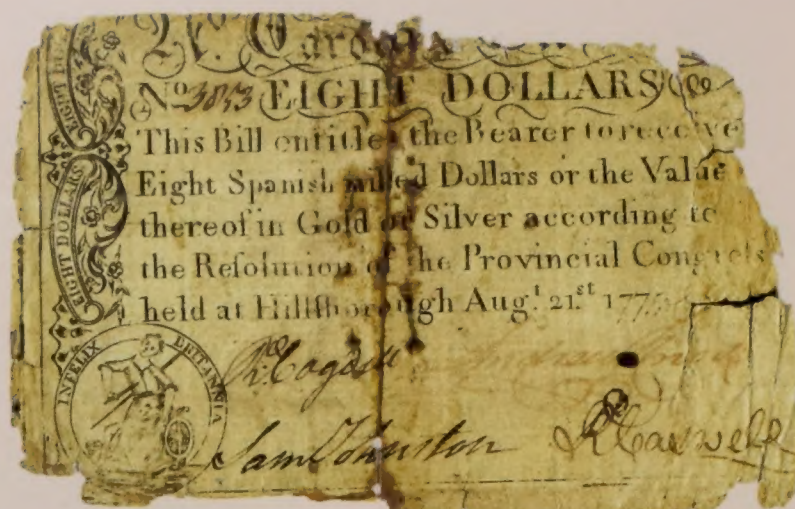 No. Carolina
No. 3853 EIGHT DOLLARS
This Bill entitles the Bearer to receive
Eight Spanish milled Dollars or the Value
thereof in Gold or Silver according to
the Reſolution of the Provincial Congreſs
held at Hillſborough Aug.t 21.st 1775
EIGHT DOLLARS
INFELIX BRITANNIA
R. Cogdell Andrew Knox
Sam Johnston RCaswell